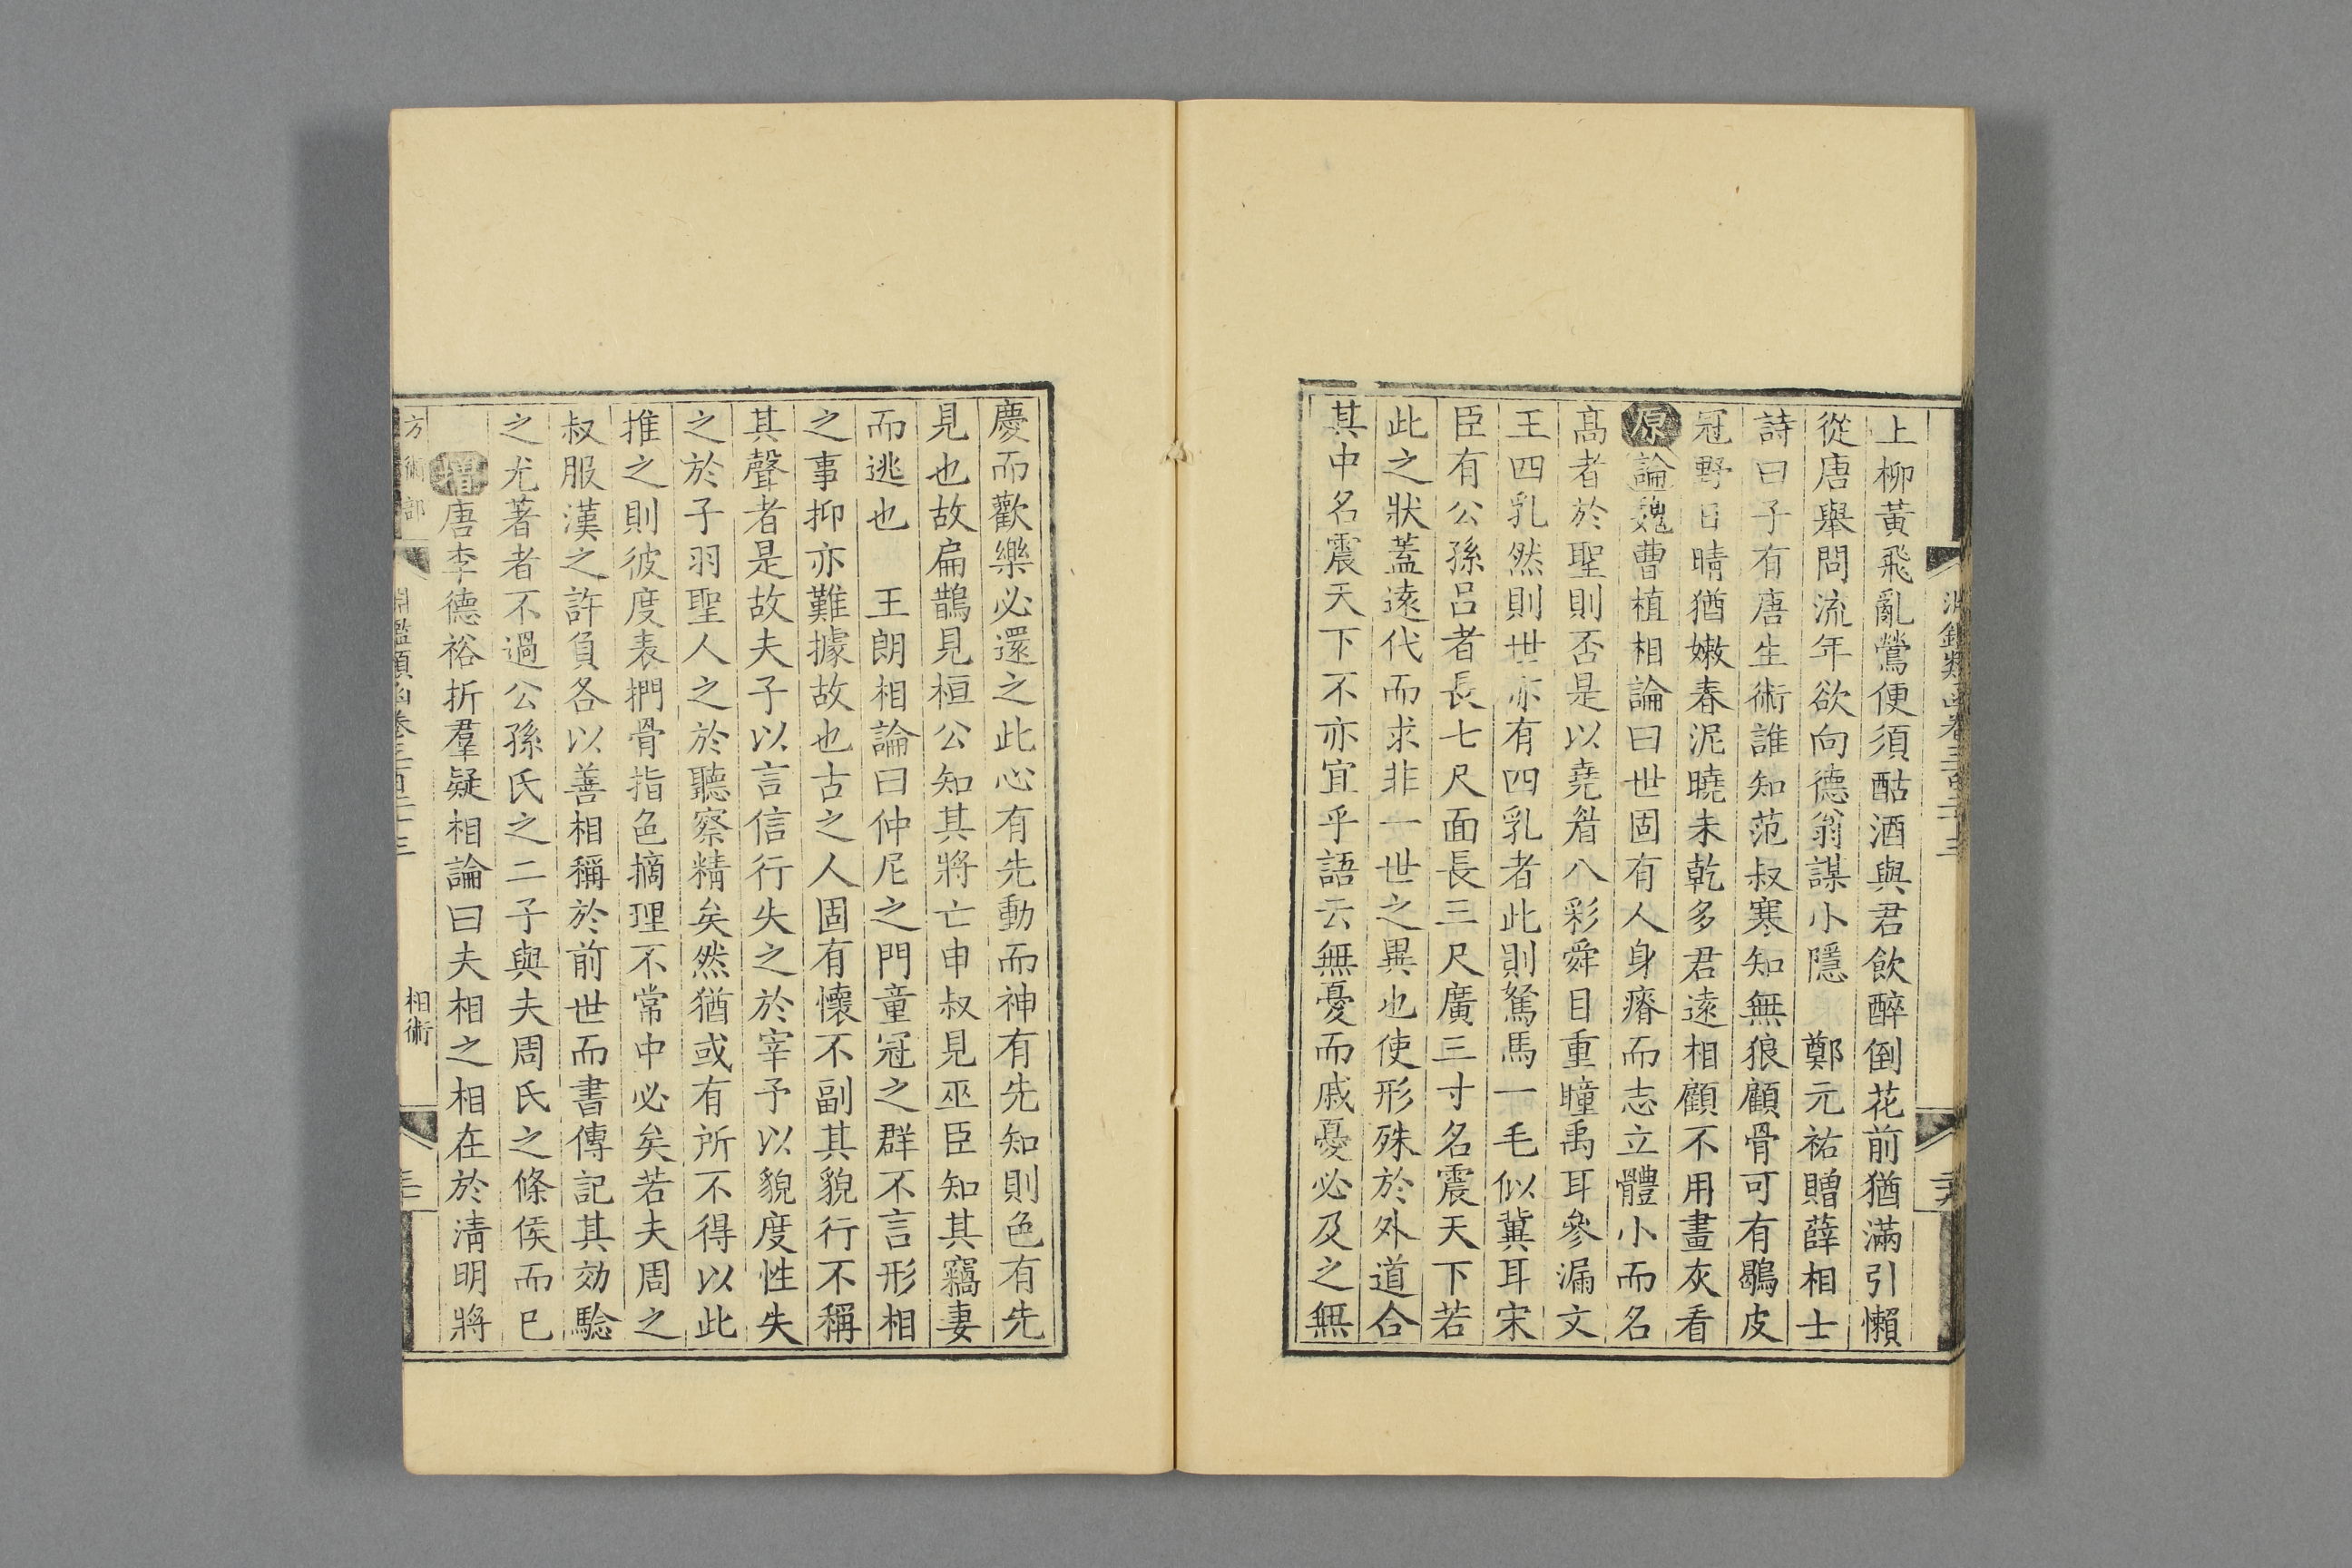 上柳黃飛亂鶯便須酤酒與君飲醉倒花前猶滿引懶
從唐舉問流年欲向德翁謀小隱　鄭元祐贈薛相士
詩曰子有唐生術誰知范叔寒知無狼顧骨可有鶡皮
冠野日晴猶嫩春泥曉未乾多君遠相顧不用畫灰看
原論魏曹植相論曰世固有人身瘠而志立體小而名
髙者於聖則否是以堯眉八彩舜目重瞳禹耳參漏文
王四乳然則世亦有四乳者此則駑馬一毛似冀耳宋
臣有公孫呂者長七尺面長三尺廣三寸名震天下若
此之狀蓋遠代而求非一世之異也使形殊於外道合
其中名震天下不亦宜乎語云無憂而戚憂必及之無
慶而歡樂必還之此心有先動而神有先知則色有先
見也故扁鵲見桓公知其將亡申叔見巫臣知其竊妻
而逃也　王朗相論曰仲尼之門童冠之群不言形相
之事抑亦難據故也古之人固有懷不副其貌行不稱
其聲者是故夫子以言信行失之於宰予以貌度性失
之於子羽聖人之於聽察精矣然猶或有所不得以此
推之則彼度表捫骨指色摘理不常中必矣若夫周之
叔服漢之許負各以善相稱於前世而書傳記其効驗
之尤著者不過公孫氏之二子與夫周氏之條侯而已
增唐李德裕折羣疑相論曰夫相之相在於淸明將
方術部
淵鑑類函卷三百二十三
相術